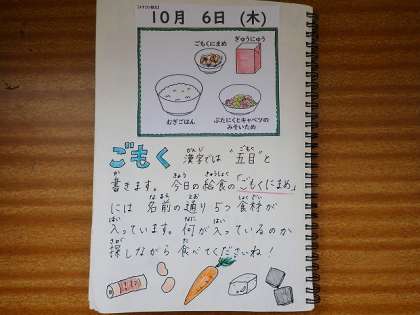 10月 6日 (木)
ごもくにまめ
ぎゅうにゅう
むぎごはん
ぶたにくとキャベツの
みそいため
ごもく 漢字では "五目"と
書きます。今日の給食の「ごもくにまめ」
には 名前の通り 5つ 食材が
入っています。何が入っているのか
探しながら 食べてくださいね！